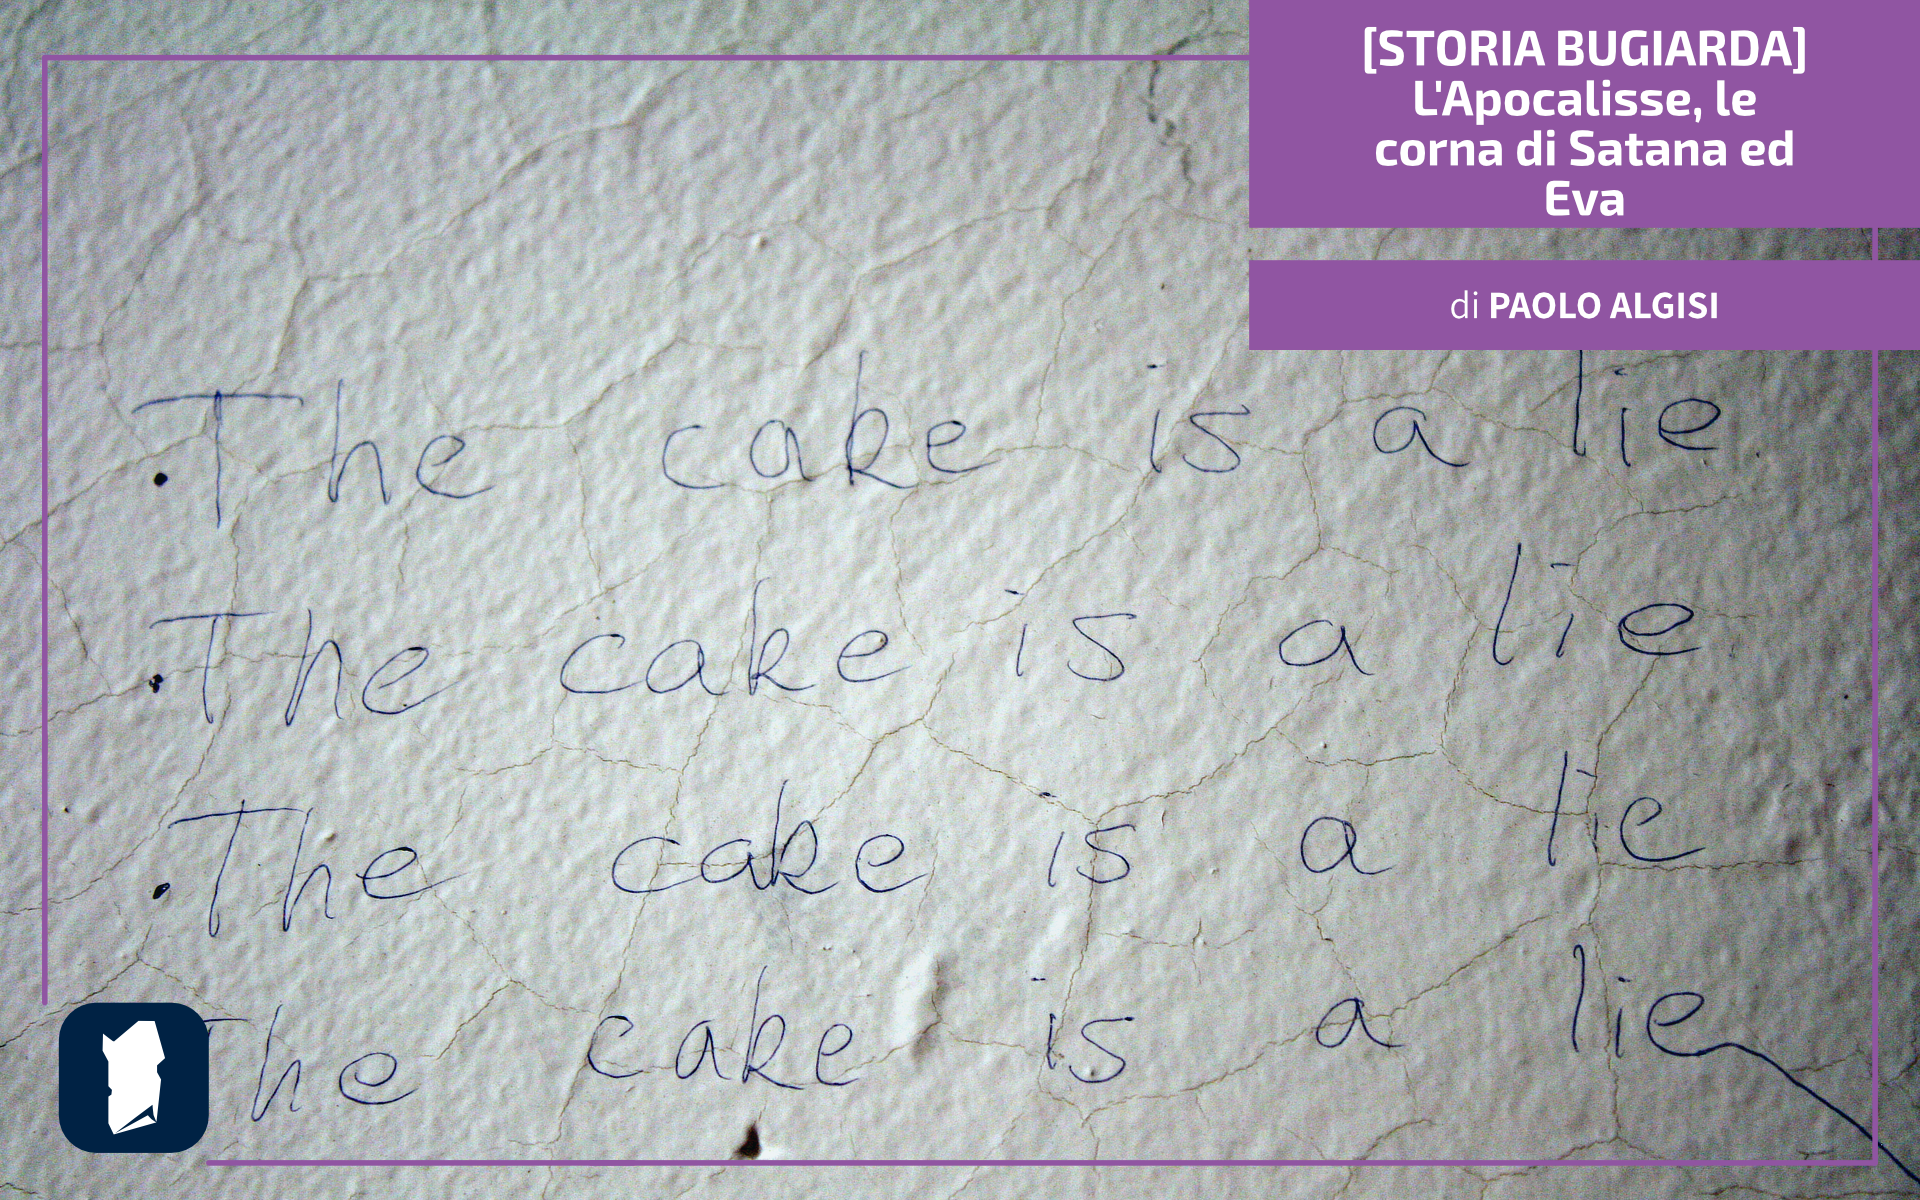 [STORIA BUGIARDA]
L'Apocalisse, le
corna di Satana ed
Eva
di PAOLO ALGISI
The cake is a lie.
The cake is a lie
The cake is a lie
The cake is a lie